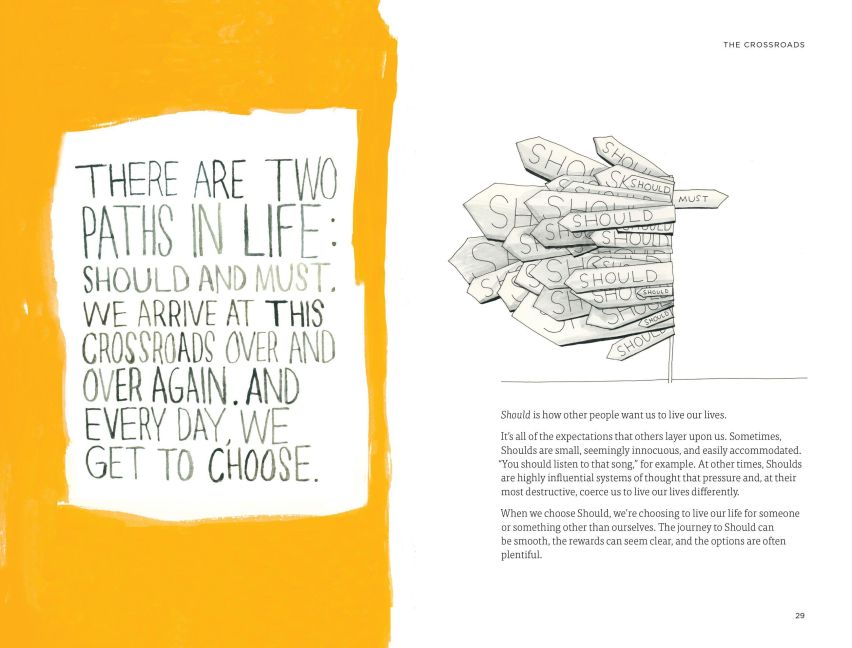 THERE ARE TWO
PATHS IN LIFE:
SHOULD AND MUST.
WE ARRIVE AT THIS
CROSSROADS OVER AND
OVER AGAIN. AND
EVERY DAY, WE
GET TO CHOOSE.
THE CROSSROADS
SHOUL
SHO
SK
SHOULD
MUST
SH
SHOULD
SHOULD
SHOULD
SHOULD
SHOU
SHOULD
SHOULD
SHOULD
SHOULD
Should is how other people want us to live our lives.
It's all of the expectations that others layer upon us. Sometimes,
Shoulds are small, seemingly innocuous, and easily accommodated.
“You should listen to that song,” for example. At other times, Shoulds
are highly influential systems of thought that pressure and, at their
most destructive, coerce us to live our lives differently.
When we choose Should, we're choosing to live our life for someone
or something other than ourselves. The journey to Should can
be smooth, the rewards can seem clear, and the options are often
plentiful.
29